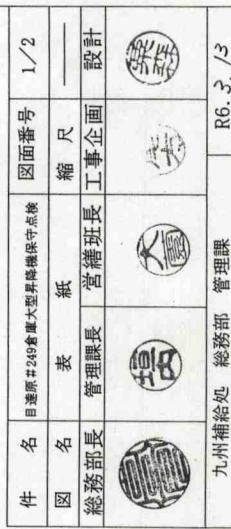 件 名 目達原#249倉庫大型昇降機保守点検 図面番号 1/2
図 名 表 紙 縮 尺 ――
総務部長 管理課長 営繕班長 工事企画 設計
九州補給処 総務部 管理課 R6.3.13